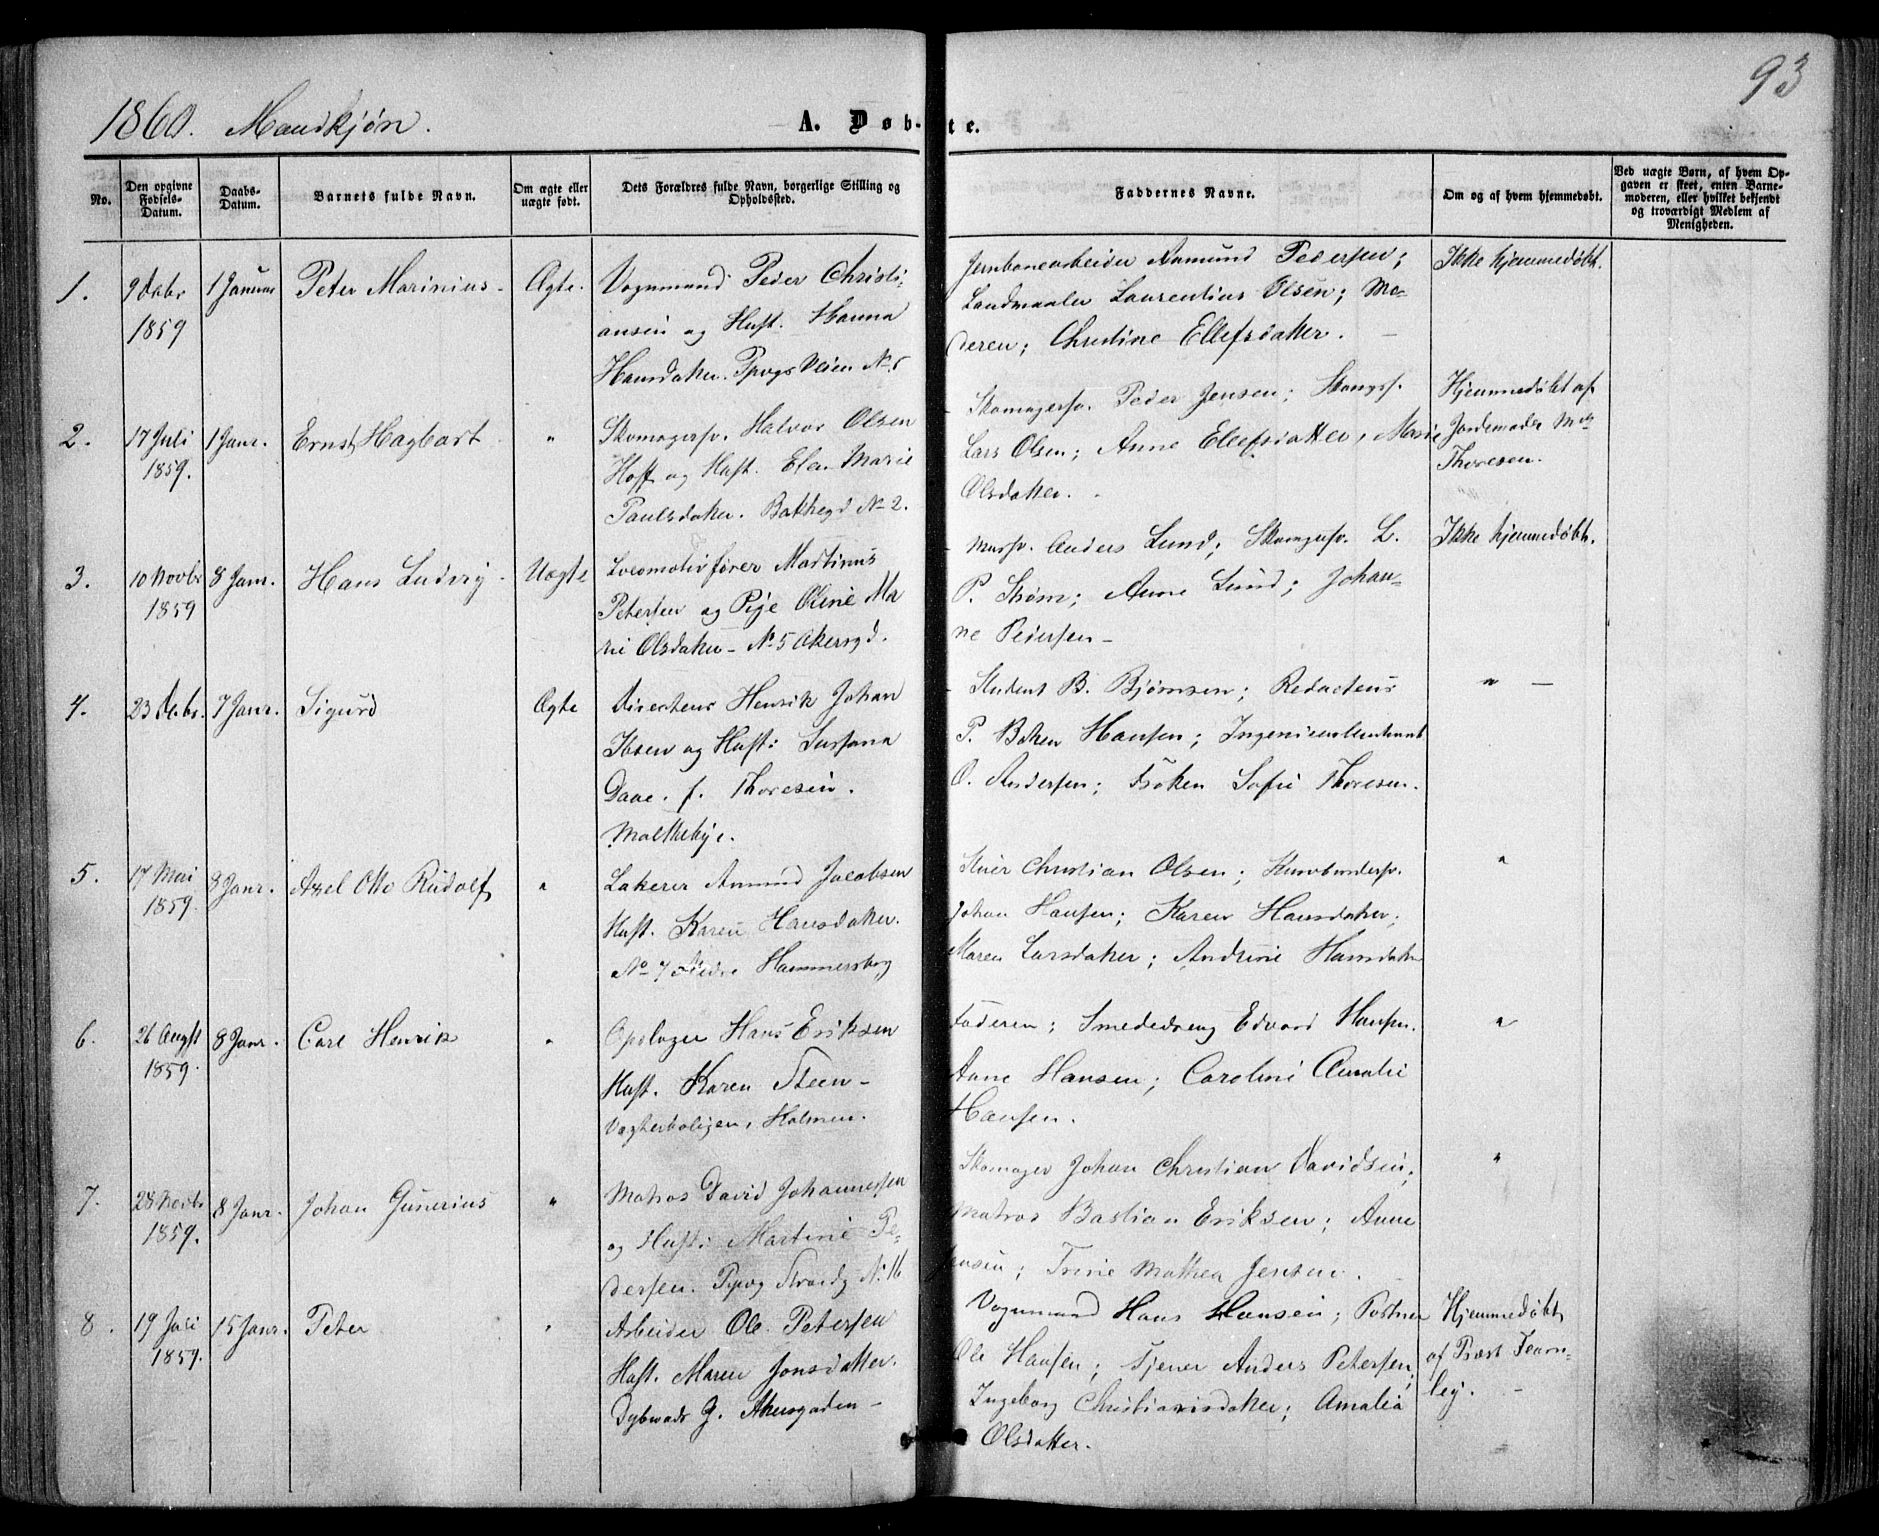 93
1860. Mandkjøn.
A. Døb-te.
No.
Den opgivne Fødsels-Datum.
Daabs-Datum.
Barnets fulde Navn.
Om ægte eller uægte født.
Dets Forældres fulde Navn, borgerlige Stilling og Opholdssted.
Faddernes Navne.
Om og af hvem hjemmedøbt.
Ved uægte Børn, af hvem Opgaven er skeet, enten Barnemoderen, eller hvilket bekjendt og troværdigt Medlem af Menigheden.
1. 9 Decbr 1859 1 Januar Peter Marinius. Ægte.
Vognmand Peder Christi-
ansen og Hust. Hanna
Hansdatter. Veien No 5
Jernbanearbeider Aamund Pedersen;
Landmaaler Laurentius Olsen; Mo-
deren; Christine Ellefsdatter.
Ikke hjemmedøbt.
2. 17 Juli 1859. 1 Janr. Ernst Hagbart "
Skomagersv. Halvor Olsen
Hoff og Hust. Elen Marie
Paulsdatter. Bakkegd No 2.
Skomagersv. Peder Jensen;
Lars Olsen; Anne Ellefsdatter, Marie
Olsdatter.
Hjemmedøbt af
Jordemoder
Thoresen.
3. 10 Novbr 1859 8 Janr. Hans Ludvig Uægte
Locomotivfører Martinus
Petersen og Pige Oline Ma
rie Olsdatter - No 5 Akersgd.
Mursv. Anders Lund; Skomagersv. L.
P. Strøm; Anne Lund; Johan-
ne Pedersen -
Ikke hjemmedøbt.
4. 23 Decbr. 7 Janr. Sigurd Ægte
Directeur Henrik Johan
Ibsen og Hust: Susanna
Daae. f. Thoresen.
Malthebye.
Student B. Bjørnsen; Redacteur
P. Botten Hansen; Ingenieurlieutenant
O. Andersen; Frøken Sofie Thoresen.
" -
5. 17 Mai 1859. 8 Janr. Axel Otto Rudolf "
Lakerer Amund Jacobsen
Hust. Karen Hansdatter.
No 7 Nedre Hammersborg
Christian Olsen; Kurvbindersv.
Johan Hansen; Karen Hansdatter;
Maren Larsdatter; Andrine Hansdatter
"
6. 26 Augst 1859. 8 Janr. Carl Henrik "
Oplager Hans Eriksen
Hust. Karen Steen -
Vagterboligen, Holmen.
Faderen; Smededreng Edvard Hansen.
Anne Hansen; Caroline Amalie
Hansen.
"
7. 28 Novbr 1859. 8 Janr. Johan Gunerius "
Matros David Johannessen
og Hust: Martine Pe-
dersen. No 16
Skomager Johan Christian Davidsen;
Matros Bastian Eriksen; Anne
Jensen; Trine Mathea Jensen.
"
8. 19 Juli 1859. 15 Janr. Peter "
Arbeider Ole Petersen
Hust. Maren Jonsdatter.
Dybwads G. Akersgaden -
Vognmand Hans Hansen;
Ole Hansen; Tjener Anders Petersen;
Ingeborg Christiansdatter; Amalia
Olsdatter.
Hjemmedøbt
af Præst Fearn-
ley. -